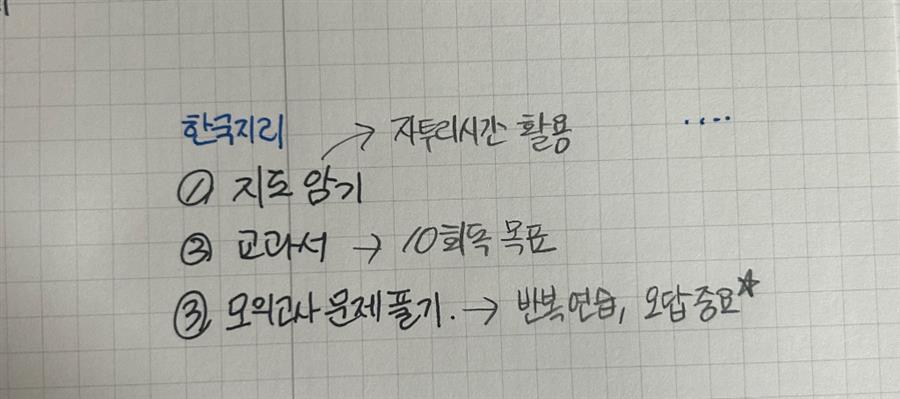 한국지리 → 자투리시간 활용 ....
① 지도 암기
② 교과서 → 10회독 목표
③ 모의고사 문제 풀기. → 반복연습, 오답중요☆